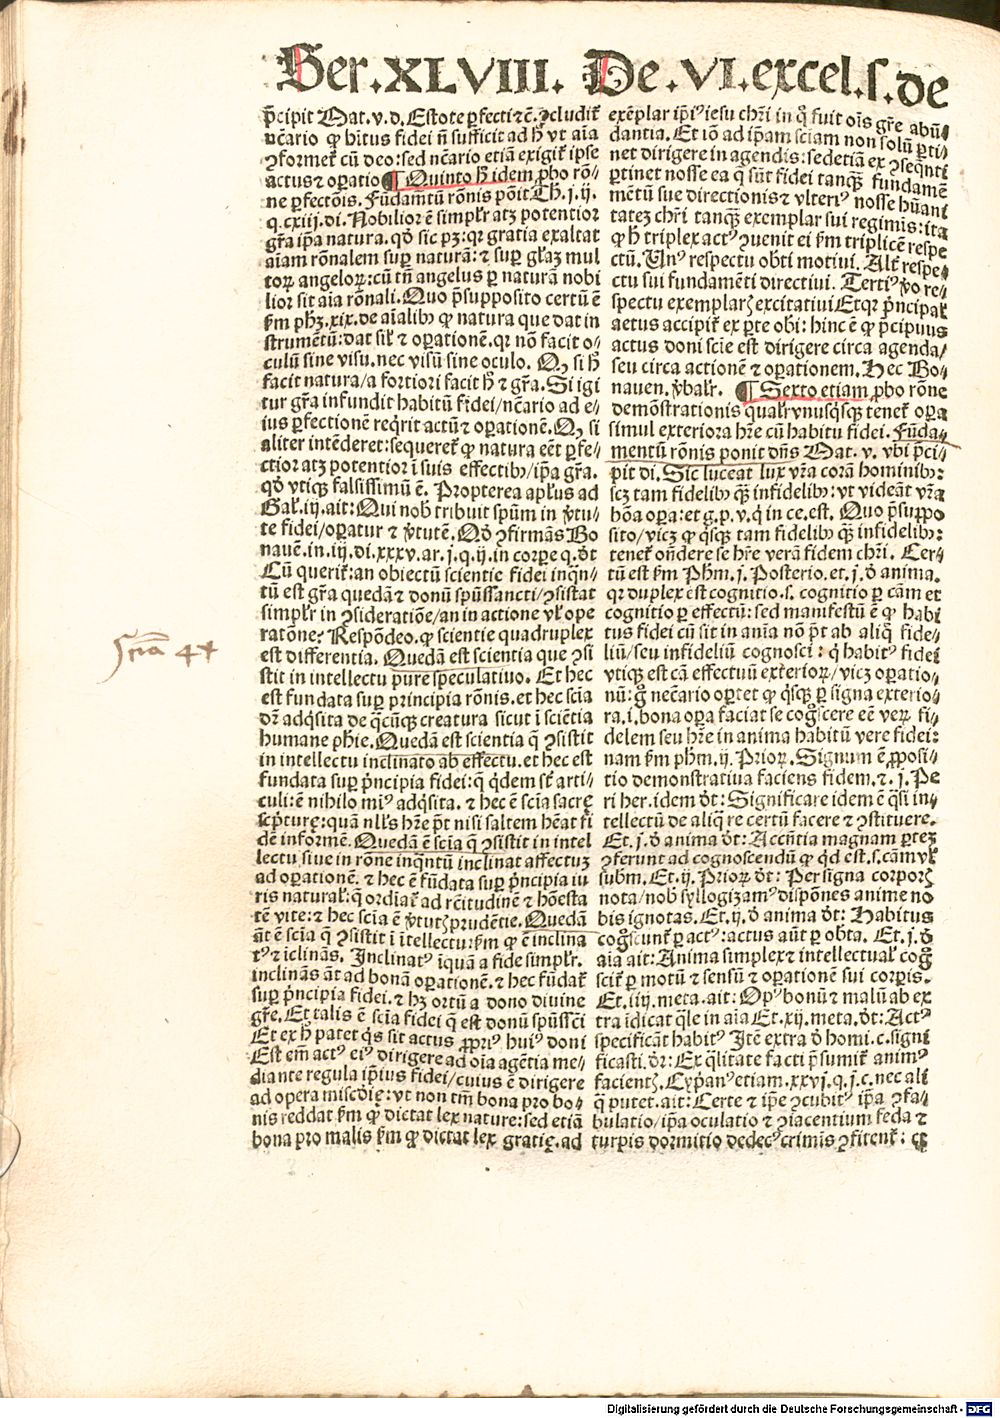 Ser.XLVIII. De.VI.excel.s.de
p̄cipit Mat.v.d.Estote ꝑfecti ⁊c̄. ꝯcludit᷑
nc̄ario ꝙ hitus fidei nō sufficit ad h̄ vt aīa
ꝯformet᷑ cū deo:sed nc̄ario etiā exigit᷑ ipse
actus ⁊ oꝑatio ¶ Quinto h̄ idem ꝓbo rō-
ne ꝑfectōis. Fūdam̄tū rōnis pōit Th.j.ij.
q.cxiij.di. Nobilior ē simpl'r atꝫ potentior
gr̄a ip̄a natura. qd̄ sic pꝫ:qr gratia exaltat
aīam rōnalem suꝑ naturā:⁊ suꝑ gl'aꝫ mul
toꝝ angeloꝝ:cū tn̄ angelus ꝑ naturā nobi
lior sit aīa rōnali. Quo p̄supposito certū ē
ẜm phꝫ.xix.de aīalibꝰ ꝙ natura que dat in
strumētū:dat sil' ⁊ oꝑationē. qr nō facit o-
culū sine visu. nec visū sine oculo. Qꝫ si h̄
facit natura/a fortiori facit h̄ ⁊ gr̄a. Si igi
tur gr̄a infundit habitū fidei/nc̄ario ad e-
ius ꝑfectionē reqrit actū ⁊ oꝑationē. Qꝫ si
aliter intēderet:sequeret᷑ ꝙ natura eēt ꝑfe-
ctior atꝫ potentior ī suis effectibꝰ/ip̄a gr̄a.
qd̄ vtiqꝫ falsissimū ē. Propterea apl'us ad
Gal'.iij.ait: Qui nob̄ tribuit spūm in v̄tu-
te fidei/oꝑatur ⁊ v̄tutē. Qd̄ ꝯfirmās Bo
nauē.in.iij.di.xxxv.ar.j.q.ij.in corꝑe q.d̄t
Cū querit᷑:an obiectū scientie fidei inqn̄-
tū est gr̄a quedā ⁊ donū spūssancti/ꝯsistat
simpl'r in ꝯsideratiōe/an in actione vl' ope
ratōne? Respōdeo. ꝙ scientie quadruplex
est differentia. Quedā est scientia que ꝯsi
stit in intellectu pure speculatiuo. Et hec
est fundata suꝑ principia rōnis. et hec scīa
dr̄ adqsita de qcūqꝫ creatura sicut ī sciētia
humane phīe. Quedā est scientia q̄ ꝯsistit
in intellectu inclinato ab effectu. et hec est
fundata suꝑ p̄ncipia fidei: q̄ qdem st̄ arti-
culi: ē nihilo minꝰ adqsita. ⁊ hec ē scīa sacrę
sc̄pturę: quā nl'ls hr̄e pt̄ nisi saltem hēat fi
dē informē. Quedā ē scīa q̄ ꝯsistit in intel
lectu siue in rōne inqntū inclinat affectuꝫ
ad oꝑationē. ⁊ hec ē fūdata suꝑ p̄ncipia iu
ris natural': q̄ ordiat᷑ ad rc̄itudinē ⁊ hōesta
tē vite: ⁊ hec scīa ē v̄tutꝭ prudētie. Quedā
āt ē scīa q̄ ꝯsistit ī ītellectu: ẜm ꝙ ē inclina
tꝰ ⁊ īclināns. Inclinatꝰ īquā a fide simpl'r.
inclinans āt ad bonā oꝑationē. ⁊ hec fūdat᷑
suꝑ p̄ncipia fidei. ⁊ hꝫ ortū a dono diuine
gr̄e. Et talis ē scīa fidei q̄ est donū spūssc̄i
Et ex h̄ patet qs sit actus ꝓpriꝰ huiꝰ doni
Est em̄ actꝰ eiꝰ dirigere ad oīa agētia me-
diante regula ip̄ius fidei/cuius ē dirigere
ad opera misc̄die: vt non tm̄ bona pro bo-
nis reddat ẜm ꝙ dictat lex nature: sed etiā
bona pro malis ẜm ꝙ dictat lex gratię. ad
exēplar ip̄iꝰ iesu chr̄i in q̄ fuit oīs gr̄e abū-
dantia. Et iō ad ip̄am sciam non solū ꝑti-
net dirigere in agendis: sed etiā ex ꝯseqn̄ti
ꝑtinet nosse ea q̄ sūt fidei tanqꝫ fundamē
mētū sue directionis ⁊ vlteriꝰ nosse hūani
tateꝫ chr̄i tanqꝫ exemplar sui regimīs: ita
ꝙ h̄ triplex actꝰ ꝯuenit ei ẜm triplicē respe
ctū. Unꝰ respectu obti motiui. Alt᷑ respe-
ctu sui fundamēti directiui. Tertiꝰ v̄o re-
spectu exemplarꝭ excitatiui Et qr p̄ncipal'
actus accipit᷑ ex ꝑte obi: hinc ē ꝙ p̄cipuus
actus doni scīe est dirigere circa agenda/
seu circa actionē ⁊ oꝑationem. Hec Bo-
nauen. v̄bal'r. ¶ Sexto etiam ꝓbo rōne
demōstrationis qual'r vnusqsqꝫ tenet᷑ oꝑa
simul exteriora hr̄e cū habitu fidei. Fūda-
mentū rōnis ponit dn̄s Mat. v. vbi p̄ci-
pit di. Sic luceat lux vr̄a corā hominibꝰ:
scꝫ tam fidelibꝰ qꝫ infidelibꝰ: vt videāt vr̄a
bōa oꝑa: et g.p.v.q in ce.est. Quo p̄suppo
sito/vicꝫ ꝙ qsqꝫ tam fidelibꝰ qꝫ infidelibꝰ:
tenet᷑ on̄dere se hr̄e verā fidem chr̄i. Cer-
tū est ẜm Phm.j.Posterio.et.j.d̄ anima.
qr duplex est cognitio.s. cognitio ꝑ cām et
cognitio ꝑ effectū: sed manifestū ē ꝙ habi
tus fidei cū sit in aīa nō pt̄ ab aliq̄ fide-
liū/seu infideliū cognosci: q̄ habitꝰ fidei
vtiqꝫ est cā effectuū exterioꝝ/vicꝫ oꝑatio-
nū: g̊ nc̄ario oꝑtet ꝙ qsqꝫ ꝑ signa exterio-
ra.i.bona oꝑa faciat se cog̊scere eē veꝝ fi-
delem seu hr̄e in anima habitū vere fidei:
nam ẜm phm.ij.Prioꝝ. Signum ē ꝓposi-
tio demonstratiua faciens fidem.⁊.j.Pe
ri her.idem d̄t: Significare idem ē qsi in-
tellectū de aliq̄ re certū facere ⁊ ꝯstituere.
Et.j.d̄ anima d̄t: Accn̄tia magnam ꝑteꝫ
ꝯferunt ad cognoscendū ꝙ qd est.s.cām vl'
subm. Et.ij.Prioꝝ. d̄t: Per signa corporꝭ
nota/nob̄ syllogizamꝰ dispōnes anime no
bis ignotas. Et.ij.d̄ anima d̄t: Habitus
cog̊scunt᷑ ꝑ actꝰ: actus aūt ꝑ obta. Et.j.d̄
aīa ait: Anima simplex ⁊ intellectual' cog̊
scit᷑ ꝑ motū ⁊ sensū ⁊ oꝑationē sui corꝑis.
Et.iiij.meta.ait: Opꝰ bonū ⁊ malū ab ex
tra īdicat qle in aīa Et.xij.meta.d̄t: Actꝰ
specificāt habitꝰ Itē extra d̄ homi.c.signi
ficasti.d̄r: Ex q̄litate facti p̄sumit᷑ animꝰ
facientꝭ. Cypanꝰ etiam.xxvj.q.j.c.nec ali
q̄ putet.ait: Certe ⁊ ip̄e ꝯcubitꝰ ip̄a ꝯfa-
bulatio/ip̄a oculatio ⁊ ꝯiacentium feda ⁊
turpis dormitio dedecꝰ crimīs ꝯfitent᷑: ⁊